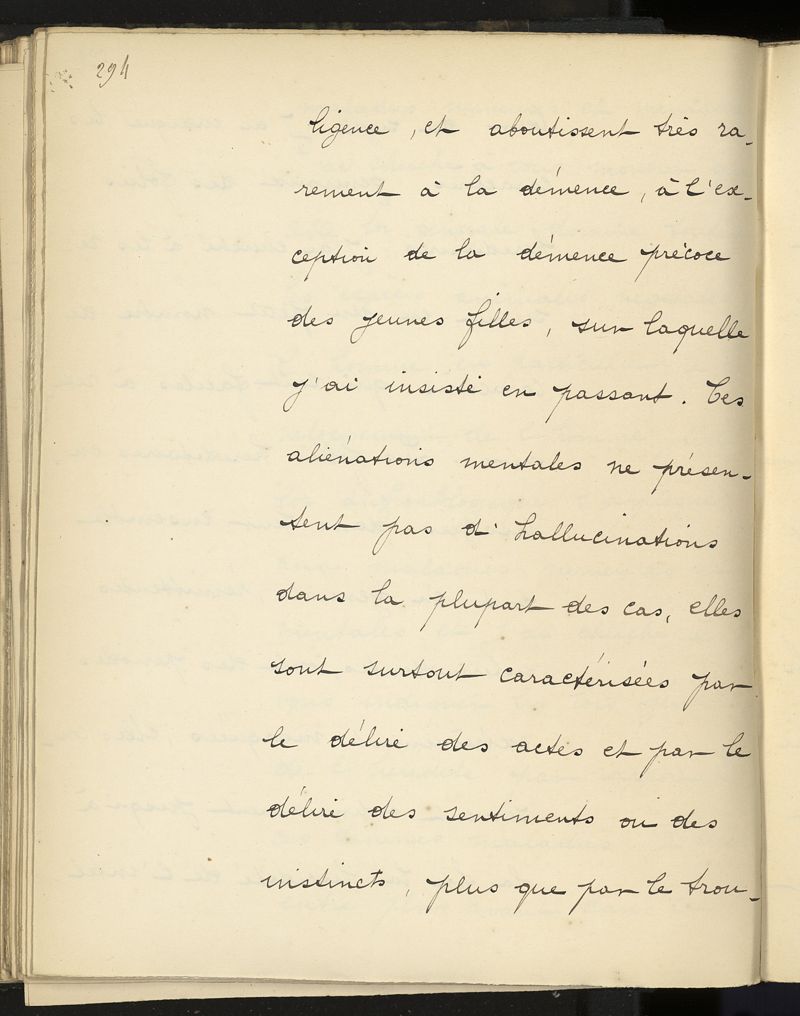 294
ligence, et aboutissent très ra-
rement à la démence, à l'ex-
ception de la démence précoce
des jeunes filles, sur laquelle
j'ai insisté en passant. Ces
aliénations mentales ne présen-
tent pas d'hallucinations
dans la plupart des cas, elles
sont surtout caractérisées par
le délire des actes et par le
délire des sentiments ou des
instincts, plus que par le trou-